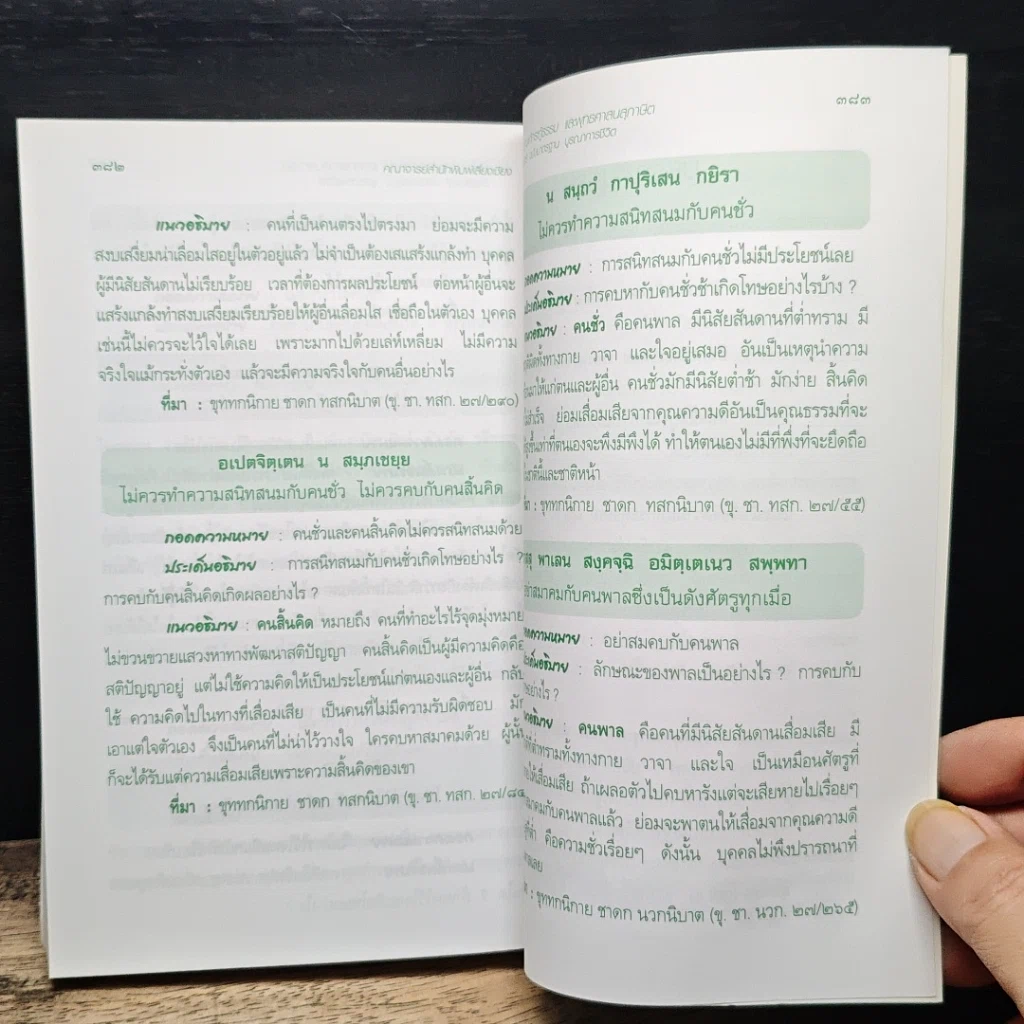 ๓๘๒
คณาจารย์สำนักพิมพ์เลี่ยงเชียง
แนวอธิบาย : คนที่เป็นคนตรงไปตรงมา ย่อมจะมีความ
สงบเสงี่ยมน่าเลื่อมใสอยู่ในตัวอยู่แล้ว ไม่จำเป็นต้องเสแสร้งแกล้งทำ บุคคล
ผู้มีนิสัยสันดานไม่เรียบร้อย เวลาที่ต้องการผลประโยชน์ ต่อหน้าผู้อื่นจะ
แสร้งแกล้งทำสงบเสงี่ยมเรียบร้อยให้ผู้อื่นเลื่อมใส เชื่อถือในตัวเอง บุคคล
เช่นนี้ไม่ควรจะไว้ใจได้เลย เพราะมากไปด้วยเล่ห์เหลี่ยม ไม่มีความ
จริงใจแม้กระทั่งตัวเอง แล้วจะมีความจริงใจกับคนอื่นอย่างไร
ที่มา : ขุททกนิกาย ชาดก ทสกนิบาต (ขุ. ชา. ทสก. ๒๗/๒๙๐)
อเปตจิตฺเตน น สมฺภเชยฺย
ไม่ควรทำความสนิทสนมกับคนชั่ว ไม่ควรคบกับคนสิ้นคิด
ถอดความหมาย : คนชั่วและคนสิ้นคิดไม่ควรสนิทสนมด้วย
ประเด็นอธิบาย : การสนิทสนมกับคนชั่วเกิดโทษอย่างไร ?
การคบกับคนสิ้นคิดเกิดผลอย่างไร ?
แนวอธิบาย : คนสิ้นคิด หมายถึง คนที่ทำอะไรไร้จุดมุ่งหมาย
ไม่ขวนขวายแสวงหาทางพัฒนาสติปัญญา คนสิ้นคิดเป็นผู้มีความคิดคือ
สติปัญญาอยู่ แต่ไม่ใช้ความคิดให้เป็นประโยชน์แก่ตนเองและผู้อื่น กลับ
ใช้ ความคิดไปในทางที่เสื่อมเสีย เป็นคนที่ไม่มีความรับผิดชอบ มัก
เอาแต่ใจตัวเอง จึงเป็นคนที่ไม่น่าไว้วางใจ ใครคบหาสมาคมด้วย ผู้นั้น
ก็จะได้รับแต่ความเสื่อมเสียเพราะความสิ้นคิดของเขา
ที่มา : ขุททกนิกาย ชาดก ทสกนิบาต (ขุ. ชา. ทสก. ๒๗/๘๔
๓๘๓
และพุทธศาสนสุภาษิต
บูรณาการชีวิต
น สนฺถวํ กาปุริเสน กยิรา
ไม่ควรทำความสนิทสนมกับคนชั่ว
ถอดความหมาย : การสนิทสนมกับคนชั่วไม่มีประโยชน์เลย
ประเด็นอธิบาย : การคบหากับคนชั่วช้าเกิดโทษอย่างไรบ้าง ?
นวอธิบาย : คนชั่ว คือคนพาล มีนิสัยสันดานที่ต่ำทราม มี
ทั้งทางกาย วาจา และใจอยู่เสมอ อันเป็นเหตุนำความ
มาให้แก่ตนและผู้อื่น คนชั่วมักมีนิสัยต่ำช้า มักง่าย สิ้นคิด
สำเร็จ ย่อมเสื่อมเสียจากคุณความดีอันเป็นคุณธรรมที่จะ
ขึ้นเท่าที่ตนเองจะพึงมีพึงได้ ทำให้ตนเองไม่มีที่พึ่งที่จะยึดถือ
ชาตินี้และชาติหน้า
: ขุททกนิกาย ชาดก ทสกนิบาต (ขุ. ชา. ทสก. ๒๗/๕๕)
พาเลน สงฺคจฺฉิ อมิตฺเตเนว สพฺพทา
ย่าสมาคมกับคนพาลซึ่งเป็นดังศัตรูทุกเมื่อ
อดความหมาย : อย่าสมคบกับคนพาล
ระเด็นอธิบาย : ลักษณะของพาลเป็นอย่างไร ? การคบกับ
อย่างไร ?
วอธิบาย : คนพาล คือคนที่มีนิสัยสันดานเสื่อมเสีย มี
ที่ต่ำทรามทั้งทางกาย วาจา และใจ เป็นเหมือนศัตรูที่
ให้เสื่อมเสีย ถ้าเผลอตัวไปคบหารังแต่จะเสียหายไปเรื่อยๆ
มาคมกับคนพาลแล้ว ย่อมจะพาตนให้เสื่อมจากคุณความดี
คือความชั่วเรื่อยๆ ดังนั้น บุคคลไม่พึงปรารถนาที่
เลย
: ขุททกนิกาย ชาดก นวกนิบาต (ขุ. ชา. นวก. ๒๗/๒๖๕)